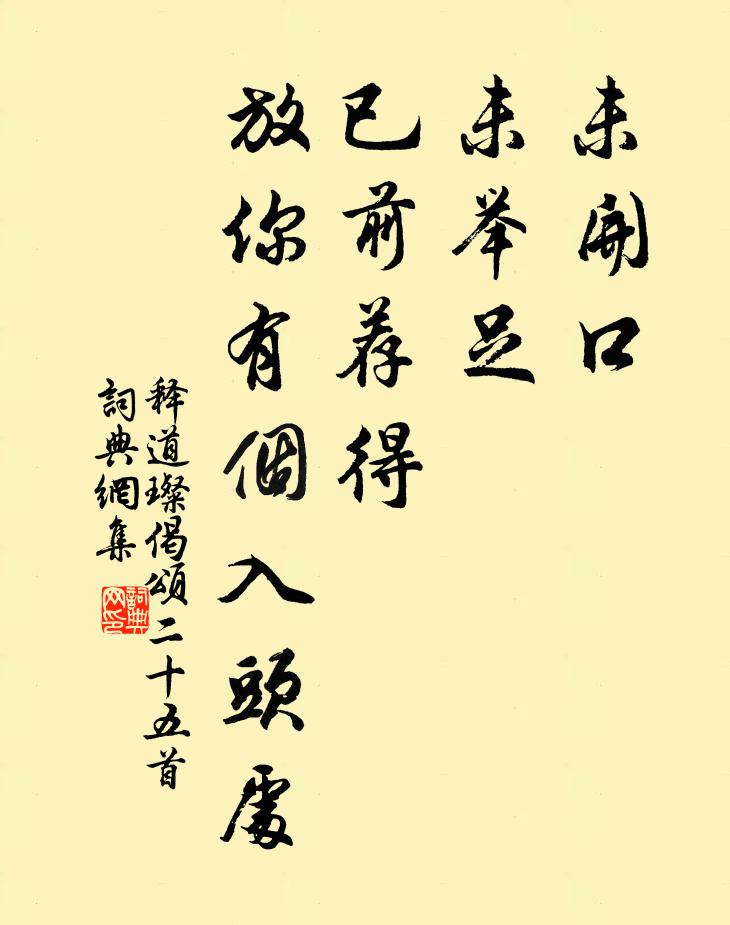 未開口
未举足
已前荐得
放你有個入頭處
释道璨偈颂二十五首
詞典網集
詞典网印